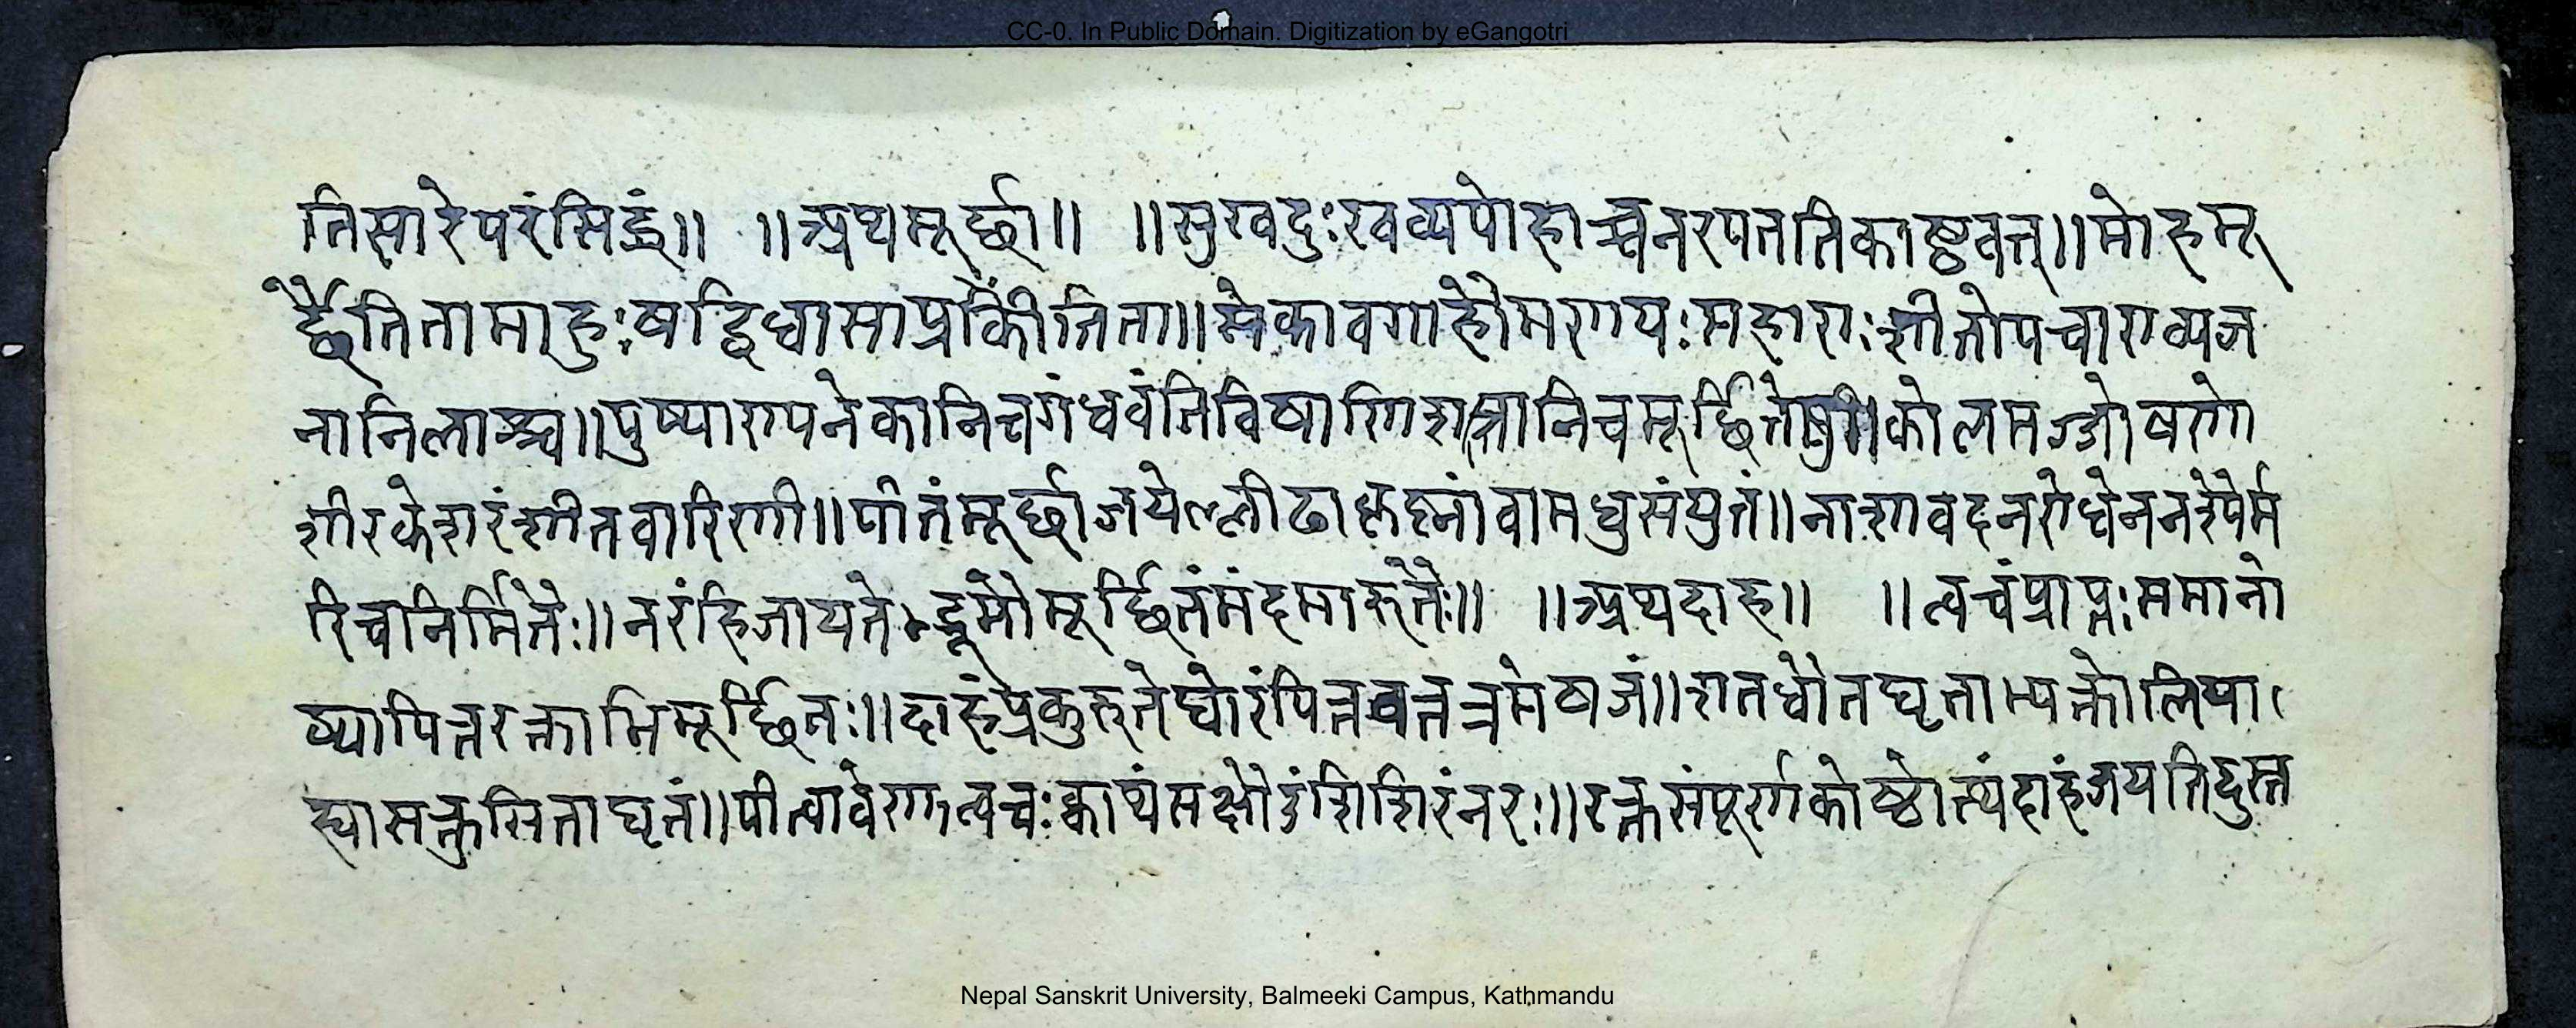 CC-0. In Public Domain. Digitization by eGangotri
तिसारेपरंसिद्धं॥ ॥अथमूर्छा॥ ॥सुखदुःखव्यपोहाच्चनरपततिकाष्ठवत्॥मोहमू
र्छेतितामाहुःषड्विधासाप्रकीर्तिता॥सेकावगाहौमणयःसहाराःशीतोपचाराव्यज
नानिलाश्च॥पुष्पाण्यनेकानिचगंधवंतिविषाणिशस्त्रानिचमूर्छितेषु॥कोलमज्जोषणो
शीरकेशरंशीतवारिणी॥पीतंमूर्छाजयेल्लीढाकृष्नांवामधुसंयुतं॥नाशावदनरोधेननरेपैर्म
रिचानिर्मितैः॥नरंहिजायतेद्भूमौमूर्छितंमंदमारुतैः॥ ॥अथदाह॥ ॥त्वचंप्राप्तःसमानो
ष्यापित्तरक्ताभिमूर्छितः॥दाहंप्रकुरुतेघोरंपित्तवत्तत्रभेषजं॥शतधौतघृताभ्यक्तोलिह्या
द्वासक्तुसिताघृतं॥पीत्वावेरण्डत्वचःक्वाथंसक्षौद्रंशिशिरंनरः॥रक्तसंपूर्णकोष्ठोत्थंदाहंजयतिदुस्त
Nepal Sanskrit University, Balmeeki Campus, Kathmandu